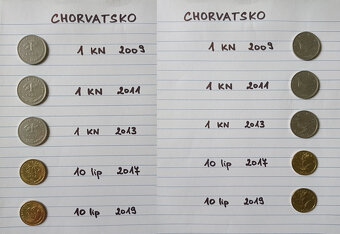 CHORVATSKO
1 KN 2009
1 KN 2011
1 KN 2013
10 lip 2017
10 lip 2019
CHORVATSKO
1 KN 2009
1 KN 2011
1 KN 2013
10 lip 2017
10 lip 2019